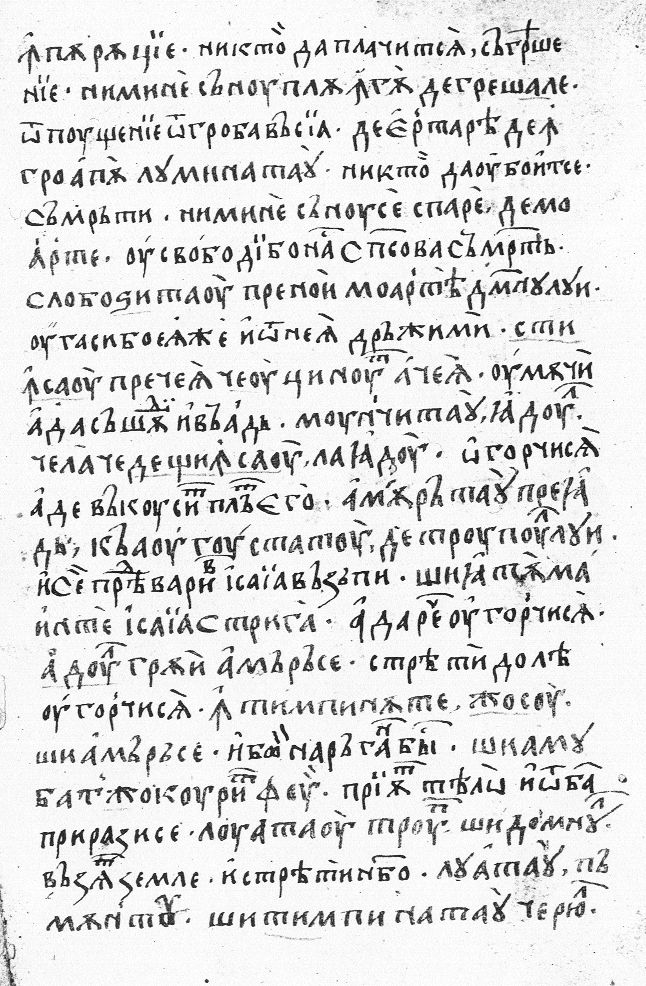 ꙟпѫрѫцїе · никто̀ да плачитсѧ, съгрⷭ҇ше
нїе · ниминѐ съноу плѫꙟгѫ̀ дегрешале ·
ѿпоущенїе ѿгроба въсїѧ · деє҆ртарѣ деꙟ
гроапѫ̀ луминатау҆ · никто̀ даоу҆боитсе ·
съмръти · ниминѐ съноусѐ спарѐ, демо
а҆рте · оу҆свободїбона̀ спⷭ҇соваⷭ҇съмрⷮ҇ь ·
слобоꙁитаоу҆ преной моартѣ дм҃нулуи ·
оу҆гасибоеѧжѐ и҆ѿнеѧ̀ дръжимѝ · сти
ꙟсаоу҆ пречеѧ̀ чеоу҆циноуⷮ а҆чеѧ̀ · оу҆мѫчѝ
а҆да съшⷣѫ и҆въа҆дь · моуⷩ҇читау҆, ꙗ҆доуⷧ҇ ·
челаче дешиꙟсаоу҆, лаꙗ҆доу҆ · ѡ҆горчисѧ̀
а҆де въкоусиⷮ плъⷮ є҆го̀ · а҆мѫ҆рътау҆ преꙗ҆
дь, къаоу҆ гоу҆статоу҆, детроупоуⷧ҇луи ·
и҆сѐ прⷣѣвариⷡ҇ і҆саїа възъпи · шиꙗ҆стѫма҆
инте і҆саїа стрига̀ · а҆да рⷱ҇е оу҆горчисѧ̀ ·
а҆доуⷧ҇ грѫѝ а҆мъръсе · стрѣтѝ долѣ
оу҆горчисѧ̀ · ꙟтимпинѫте, жосоу҆ ·
ши а҆мъръсе · и҆бо ѡ҆паръгаⷩ҇ бы̀ · шкаму
бат҆жокоуриⷮ феу҆ · прїѫⷮ тѣлѡ̀ и҆ѿба̀
приразисе · лоуатаоу҆ троуⷫ҇ · ши домнуⷧ҇ ·
възѧⷮ земле · и҆стрѣтѝ нб҃о · луатау҆, пъ
мѫнтⷹ · ши тимпинатау҆ черюⷧ҇ ·